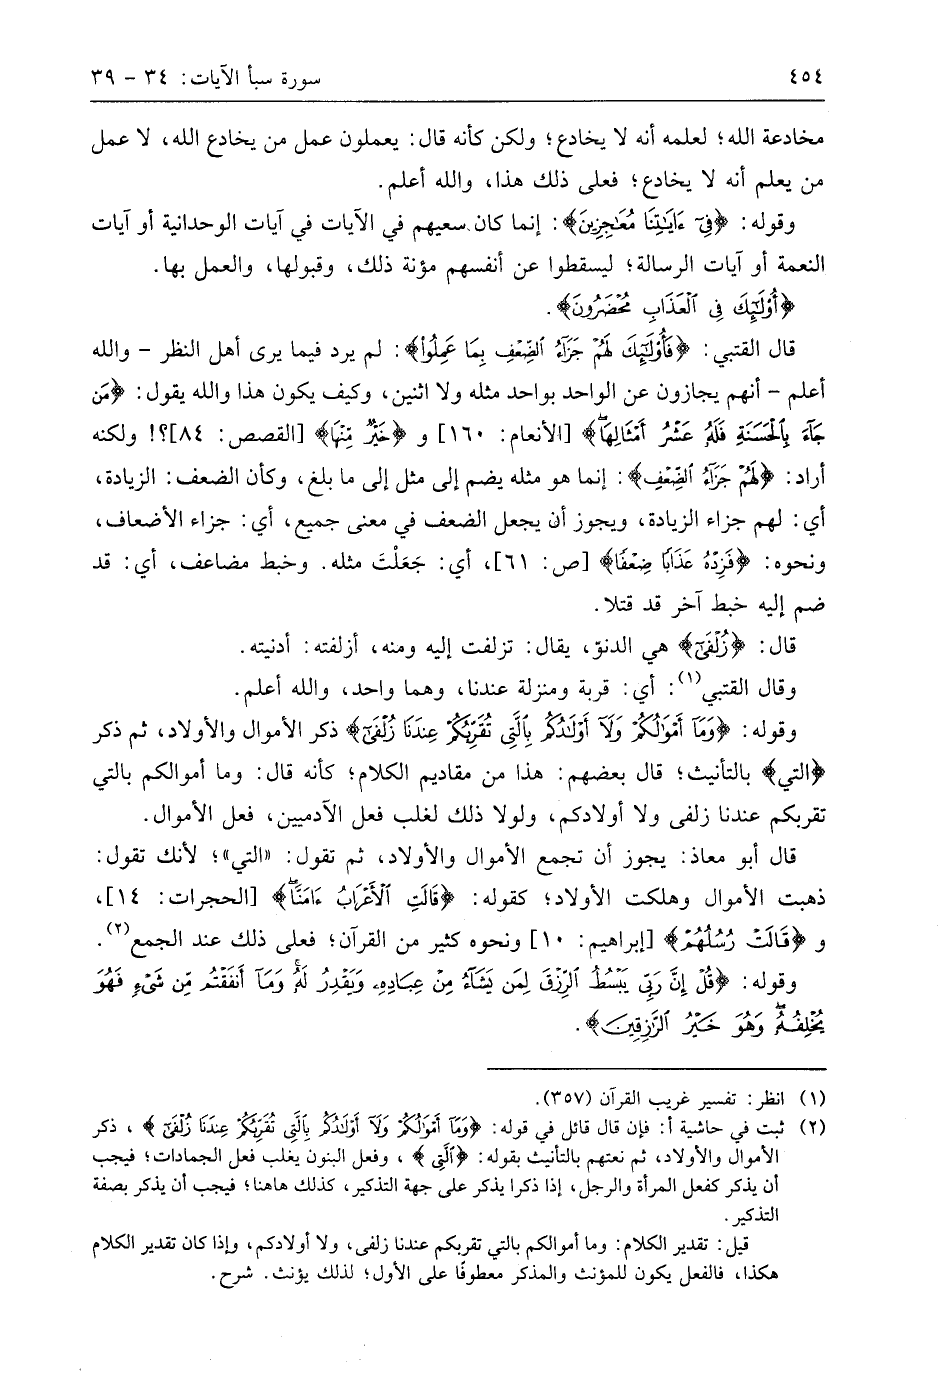 ٤٥٤ سورة سبأ الآيات: ٣٤ - ٣٩
مخادعة الله؛ لعلمه أنه لا يخادع؛ ولكن كأنه قال: يعملون عمل من يخادع الله، لا عمل
من يعلم أنه لا يخادع؛ فعلى ذلك هذا، والله أعلم.
وقوله: ﴿فِيٓ ءَايَٰتِنَا مُعَٰجِزِينَ﴾: إنما كان سعيهم في الآيات في آيات الوحدانية أو آيات
النعمة أو آيات الرسالة؛ ليسقطوا عن أنفسهم مؤنة ذلك، وقبولها، والعمل بها.
﴿أُوْلَٰٓئِكَ فِي ٱلۡعَذَابِ مُحۡضَرُونَ﴾.
قال القتبي: ﴿فَأُوْلَٰٓئِكَ لَهُمۡ جَزَآءُ ٱلضِّعۡفِ بِمَا عَمِلُواْ﴾: لم يرد فيما يرى أهل النظر – والله
أعلم – أنهم يجازون عن الواحد بواحد مثله ولا اثنين، وكيف يكون هذا والله يقول: ﴿مَن
جَآءَ بِٱلۡحَسَنَةِ فَلَهُۥ عَشۡرُ أَمۡثَالِهَاۖ﴾ [الأنعام: ١٦٠] و ﴿خَيۡرٌ مِّنۡهَا﴾ [القصص: ٨٤]؟! ولكنه
أراد: ﴿لَهُمۡ جَزَآءُ ٱلضِّعۡفِ﴾: إنما هو مثله يضم إلى مثل إلى ما بلغ، وكأن الضعف: الزيادة،
أي: لهم جزاء الزيادة، ويجوز أن يجعل الضعف في معنى جميع، أي: جزاء الأضعاف،
ونحوه: ﴿فَزِدۡهُ عَذَابٗا ضِعۡفٗا﴾ [ص: ٦١]، أي: جَعَلْتَ مثله. وخبط مضاعف، أي: قد
ضم إليه خبط آخر قد قتلا.
قال: ﴿زُلۡفَىٰٓ﴾ هي الدنوّ، يقال: تزلفت إليه ومنه، أزلفته: أدنيته.
وقال القتبي(١): أي: قربة ومنزلة عندنا، وهما واحد، والله أعلم.
وقوله: ﴿وَمَآ أَمۡوَٰلُكُمۡ وَلَآ أَوۡلَٰدُكُم بِٱلَّتِي تُقَرِّبُكُمۡ عِندَنَا زُلۡفَىٰٓ﴾ ذكر الأموال والأولاد، ثم ذكر
﴿التي﴾ بالتأنيث؛ قال بعضهم: هذا من مقاديم الكلام؛ كأنه قال: وما أموالكم بالتي
تقربكم عندنا زلفى ولا أولادكم، ولولا ذلك لغلب فعل الآدميين، فعل الأموال.
قال أبو معاذ: يجوز أن تجمع الأموال والأولاد، ثم تقول: «التي»؛ لأنك تقول:
ذهبت الأموال وهلكت الأولاد؛ كقوله: ﴿قَالَتِ ٱلۡأَعۡرَابُ ءَامَنَّاۖ﴾ [الحجرات: ١٤]،
و ﴿قَالَتۡ رُسُلُهُمۡ﴾ [إبراهيم: ١٠] ونحوه كثير من القرآن؛ فعلى ذلك عند الجمع(٢).
وقوله: ﴿قُلۡ إِنَّ رَبِّي يَبۡسُطُ ٱلرِّزۡقَ لِمَن يَشَآءُ مِنۡ عِبَادِهِۦ وَيَقۡدِرُ لَهُۥۚ وَمَآ أَنفَقۡتُم مِّن شَيۡءٖ فَهُوَ
يُخۡلِفُهُۥۖ وَهُوَ خَيۡرُ ٱلرَّٰزِقِينَ﴾.
(١) انظر: تفسير غريب القرآن (٣٥٧).
(٢) ثبت في حاشية أ: فإن قال قائل في قوله: ﴿وَمَآ أَمۡوَٰلُكُمۡ وَلَآ أَوۡلَٰدُكُم بِٱلَّتِي تُقَرِّبُكُمۡ عِندَنَا زُلۡفَىٰٓ﴾، ذكر
الأموال والأولاد، ثم نعتهم بالتأنيث بقوله: ﴿ٱلَّتِي﴾، وفعل البنون يغلب فعل الجمادات؛ فيجب
أن يذكر كفعل المرأة والرجل، إذا ذكرا يذكر على جهة التذكير، كذلك هاهنا؛ فيجب أن يذكر بصفة
التذكير.
قيل: تقدير الكلام: وما أموالكم بالتي تقربكم عندنا زلفى، ولا أولادكم، وإذا كان تقدير الكلام
هكذا، فالفعل يكون للمؤنث والمذكر معطوفًا على الأول؛ لذلك يؤنث. شرح.